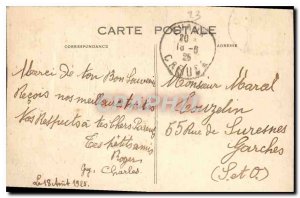 23
CARTE POSTALE
CORRESPONDANCE
ADRESSE
18 -8
25
Merci de ton Bon Souvenir
Reçois nos meilleurs
Nos Respects à tes chers Parents
Tes petits amis
Roger
Charles
Le 18 Août 1925
Monsieur Marcel
65 Rue de Suresnes
Garches
(S-et-O)